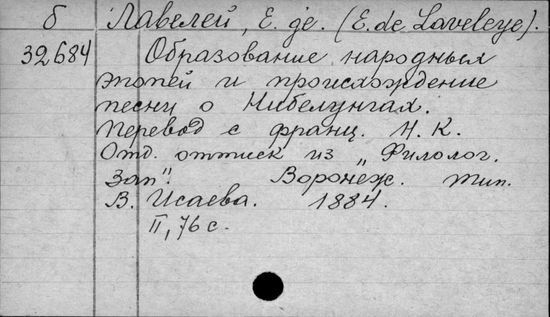 б Лавелей, Е. де. (E. de Laveleye).
32684 Образование народных
эпопей и происхождение
песни о Нибелунгах.
Перевод с франц. Н. К.
Отд. оттиск из „Филолог.
Зап". Воронеж. тип.
В. Исаева. 1884.
II, 76 с.